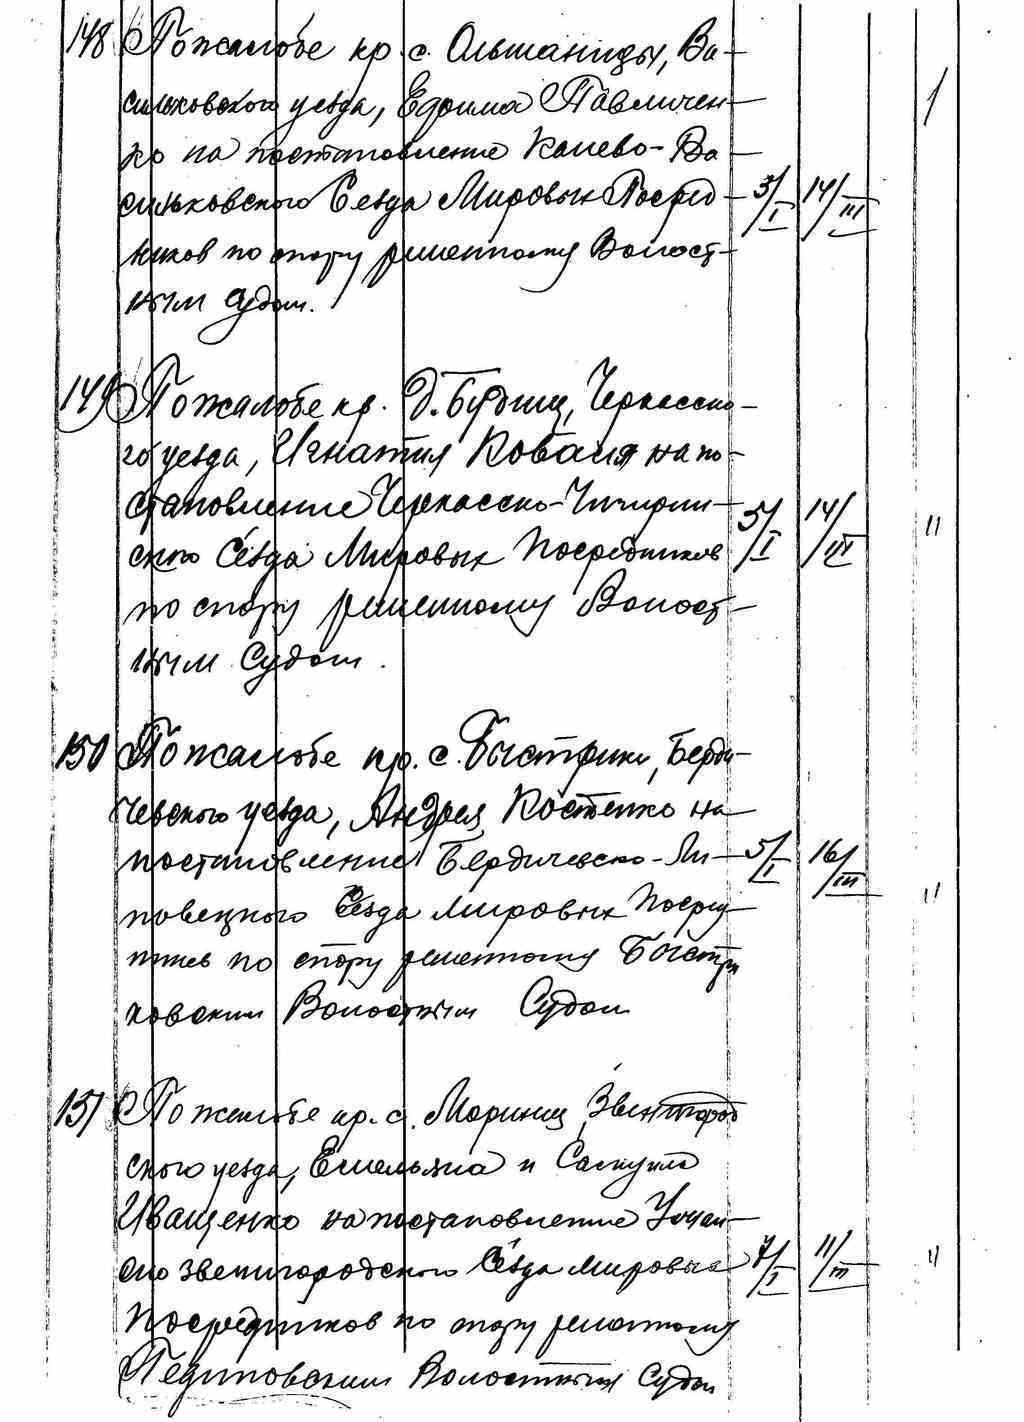 148 Пожалобе кр. с. Ольшаницы, Ва-
сильковского уезда, Ефима Павличен-
ко на постановление Канево-Ва-
сильковского Сезда Мировых Посред- 3/I 14/III 1
ников по спору решенному Волост-
ным Судом.
149 Пожалобе кр. д. Будищ, Черкасско-
го уезда, Игнатия Коваля на по-
становление Черкасско-Чигирин- 5/I 14/III "
ского Сезда Мировых Посредников
по спору решенному Волост-
ным Судом.
150 Пожалобе кр. с. Быстрик, Берди-
чевского уезда, Андрея Костенко на
постановление Бердичевско-Ли- 5/I 16/III "
повецкого Сезда Мировых Посред
ников по спору решенному Быстри
ковским Волостным Судом
151 Пожалобе кр. с. Моринец, Звенигород
ского уезда, Емельяна и
Иващенко на постановление Уман-
ско Звенигородского Сезда Мировых 7/I 11/III "
Посредников по спору решенному
Пединовским Волостным Судом